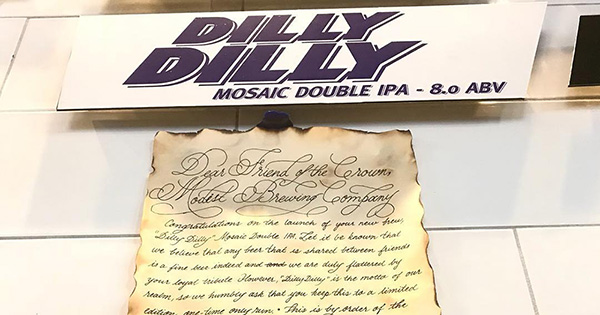 DILLY
DILLY
MOSAIC DOUBLE IPA - 8.0 ABV
Dear Friend of the Crown,
Modest Brewing Company
Congratulations on the launch of your new brew,
"Dilly Dilly" Mosaic Double IPA. Let it be known that
we believe that any beer that is shared between friends
is a fine beer indeed and and we are duly flattered by
your loyal tribute. However, "Dilly Dilly" is the motto of our
realm, so we humbly ask that you keep this to a limited
edition, one-time only run. This is by order of the